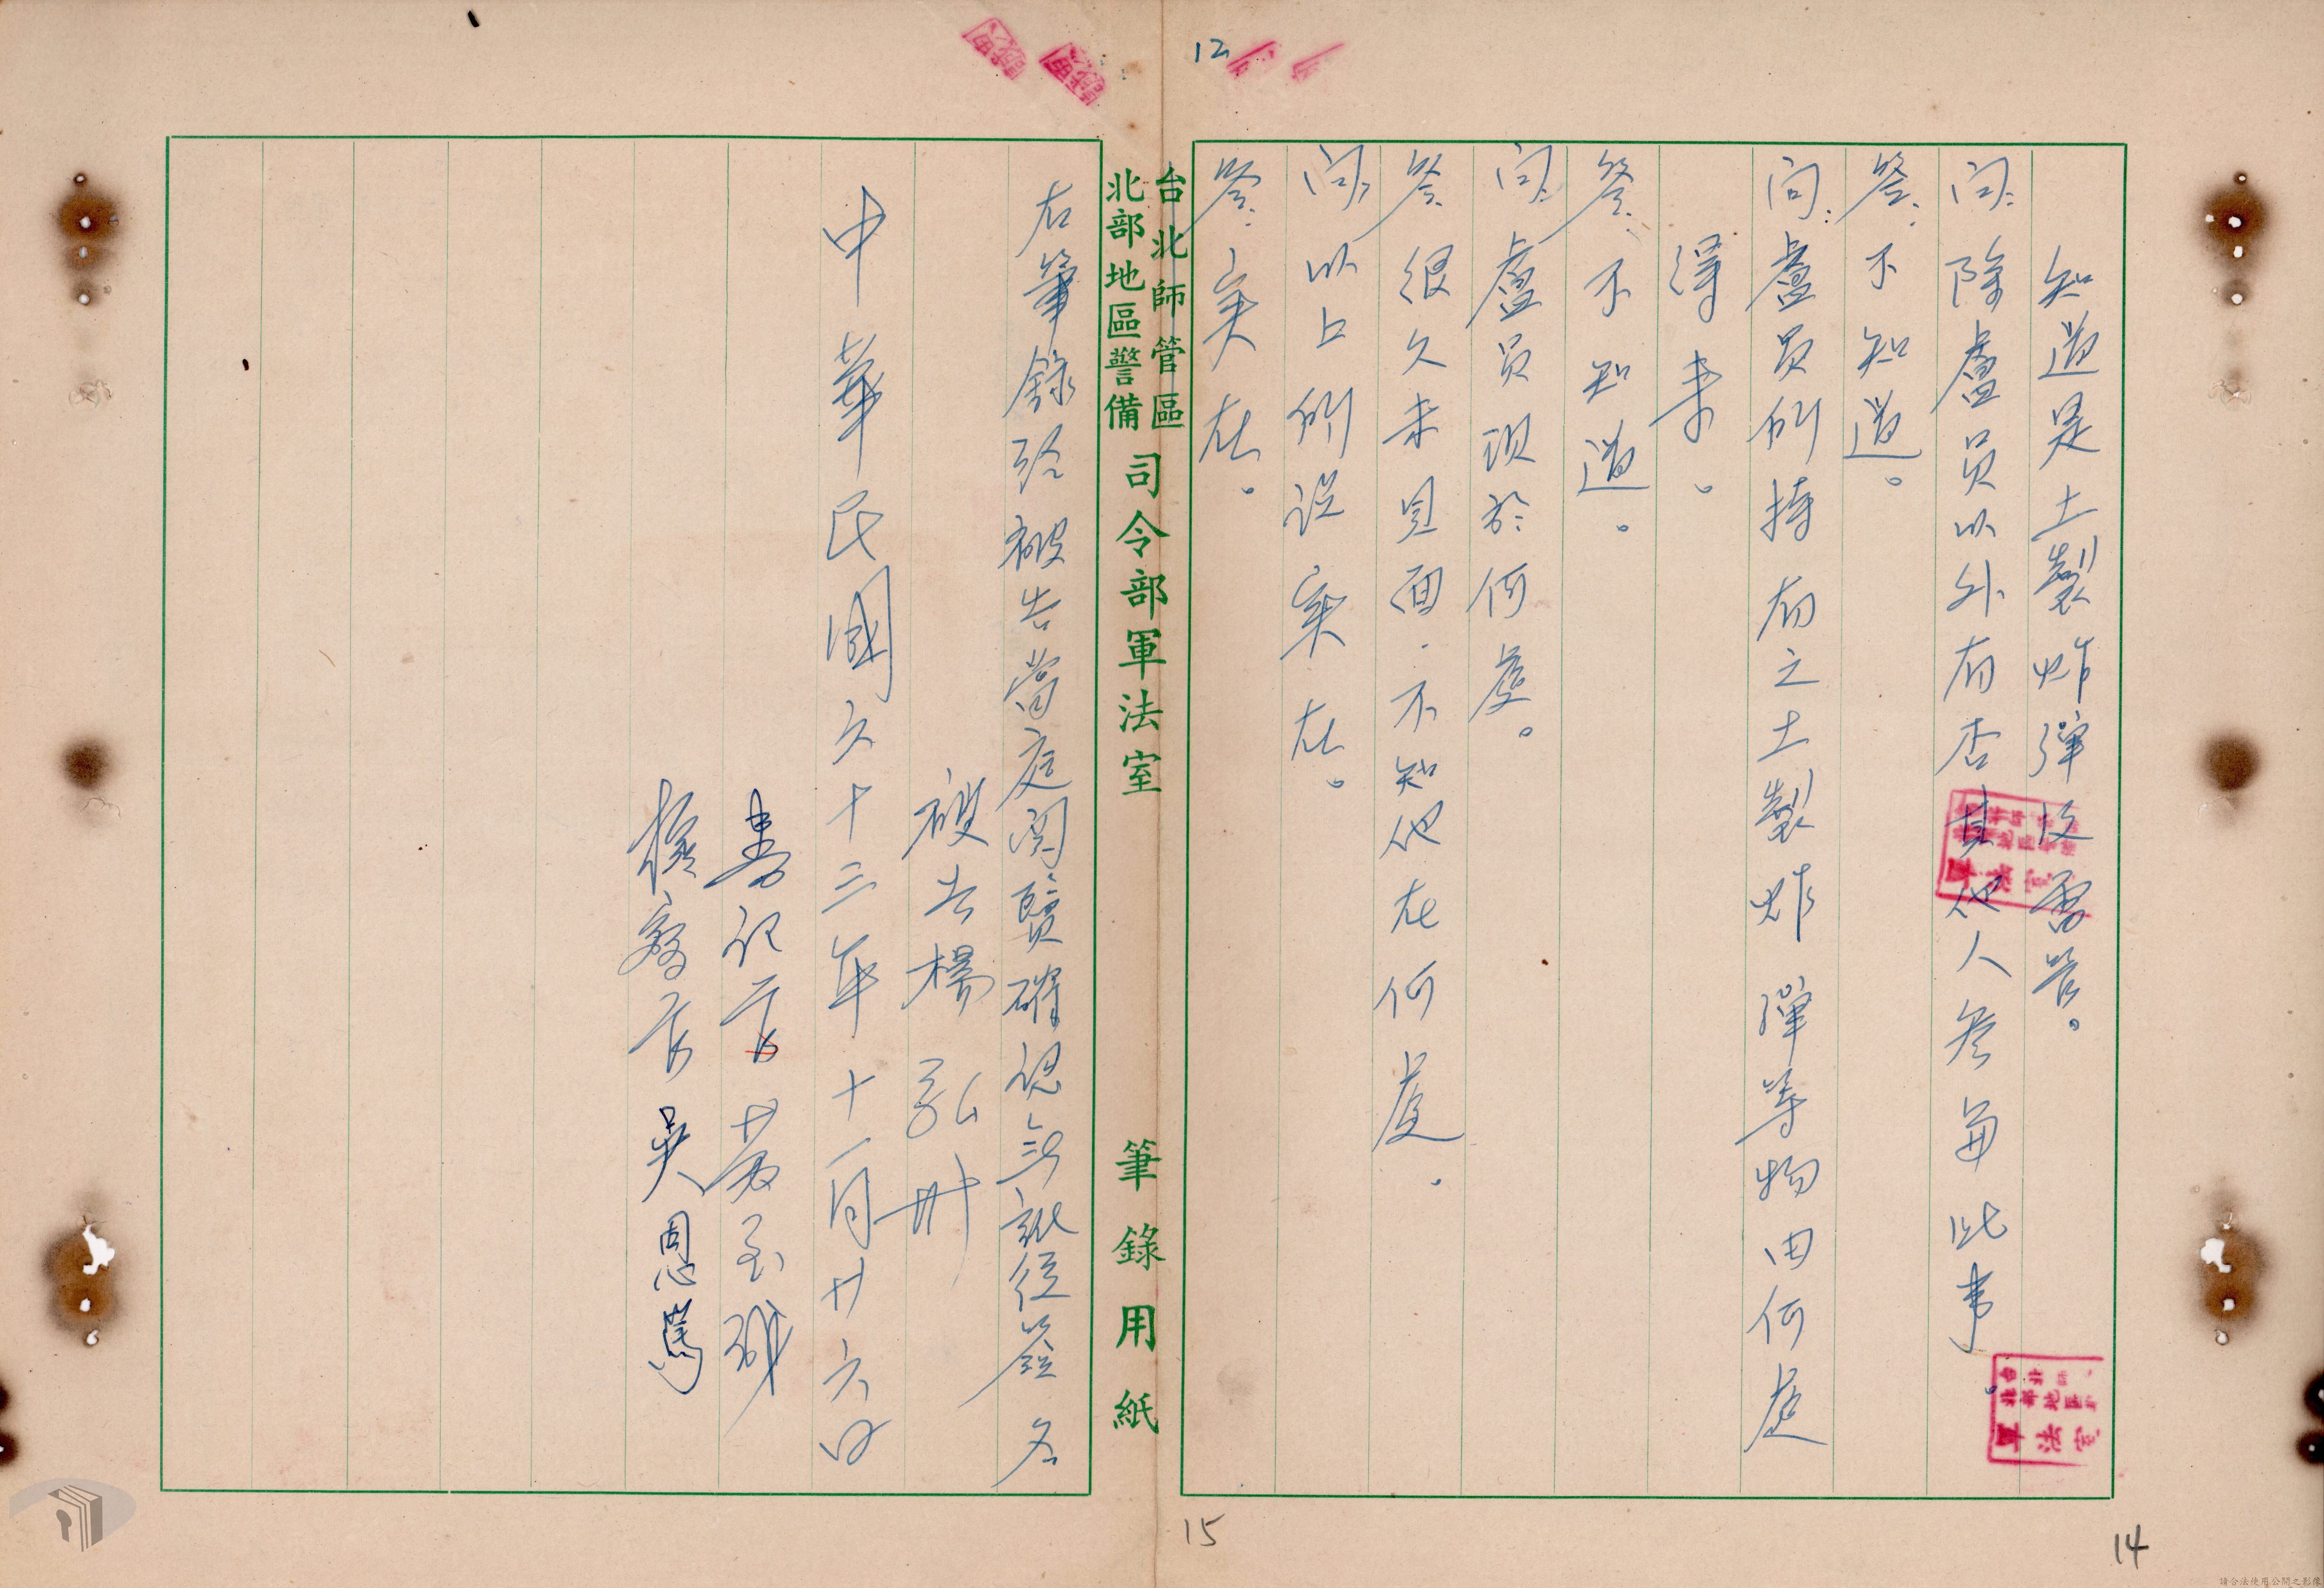 12
知道是土製炸彈及雷管。
問：除盧員以外有否其他人參與此事。
答：不知道。
問：盧員所持有之土製炸彈等物由何處
得來。
答：不知道。
問：盧員現於何處。
答：很久未見面．不知他在何處．
問：以上所說實在。
答：實在。
台北師管區
北部地區警備
司令部軍法室
筆錄用紙
右筆錄經被告當庭閱覽確認無訛後簽名
被告楊
中華民國六十三年十一月廿六日
書記官黃玉
檢察官吳恩篤
軍法室
15
14
請合法使用公開之影像